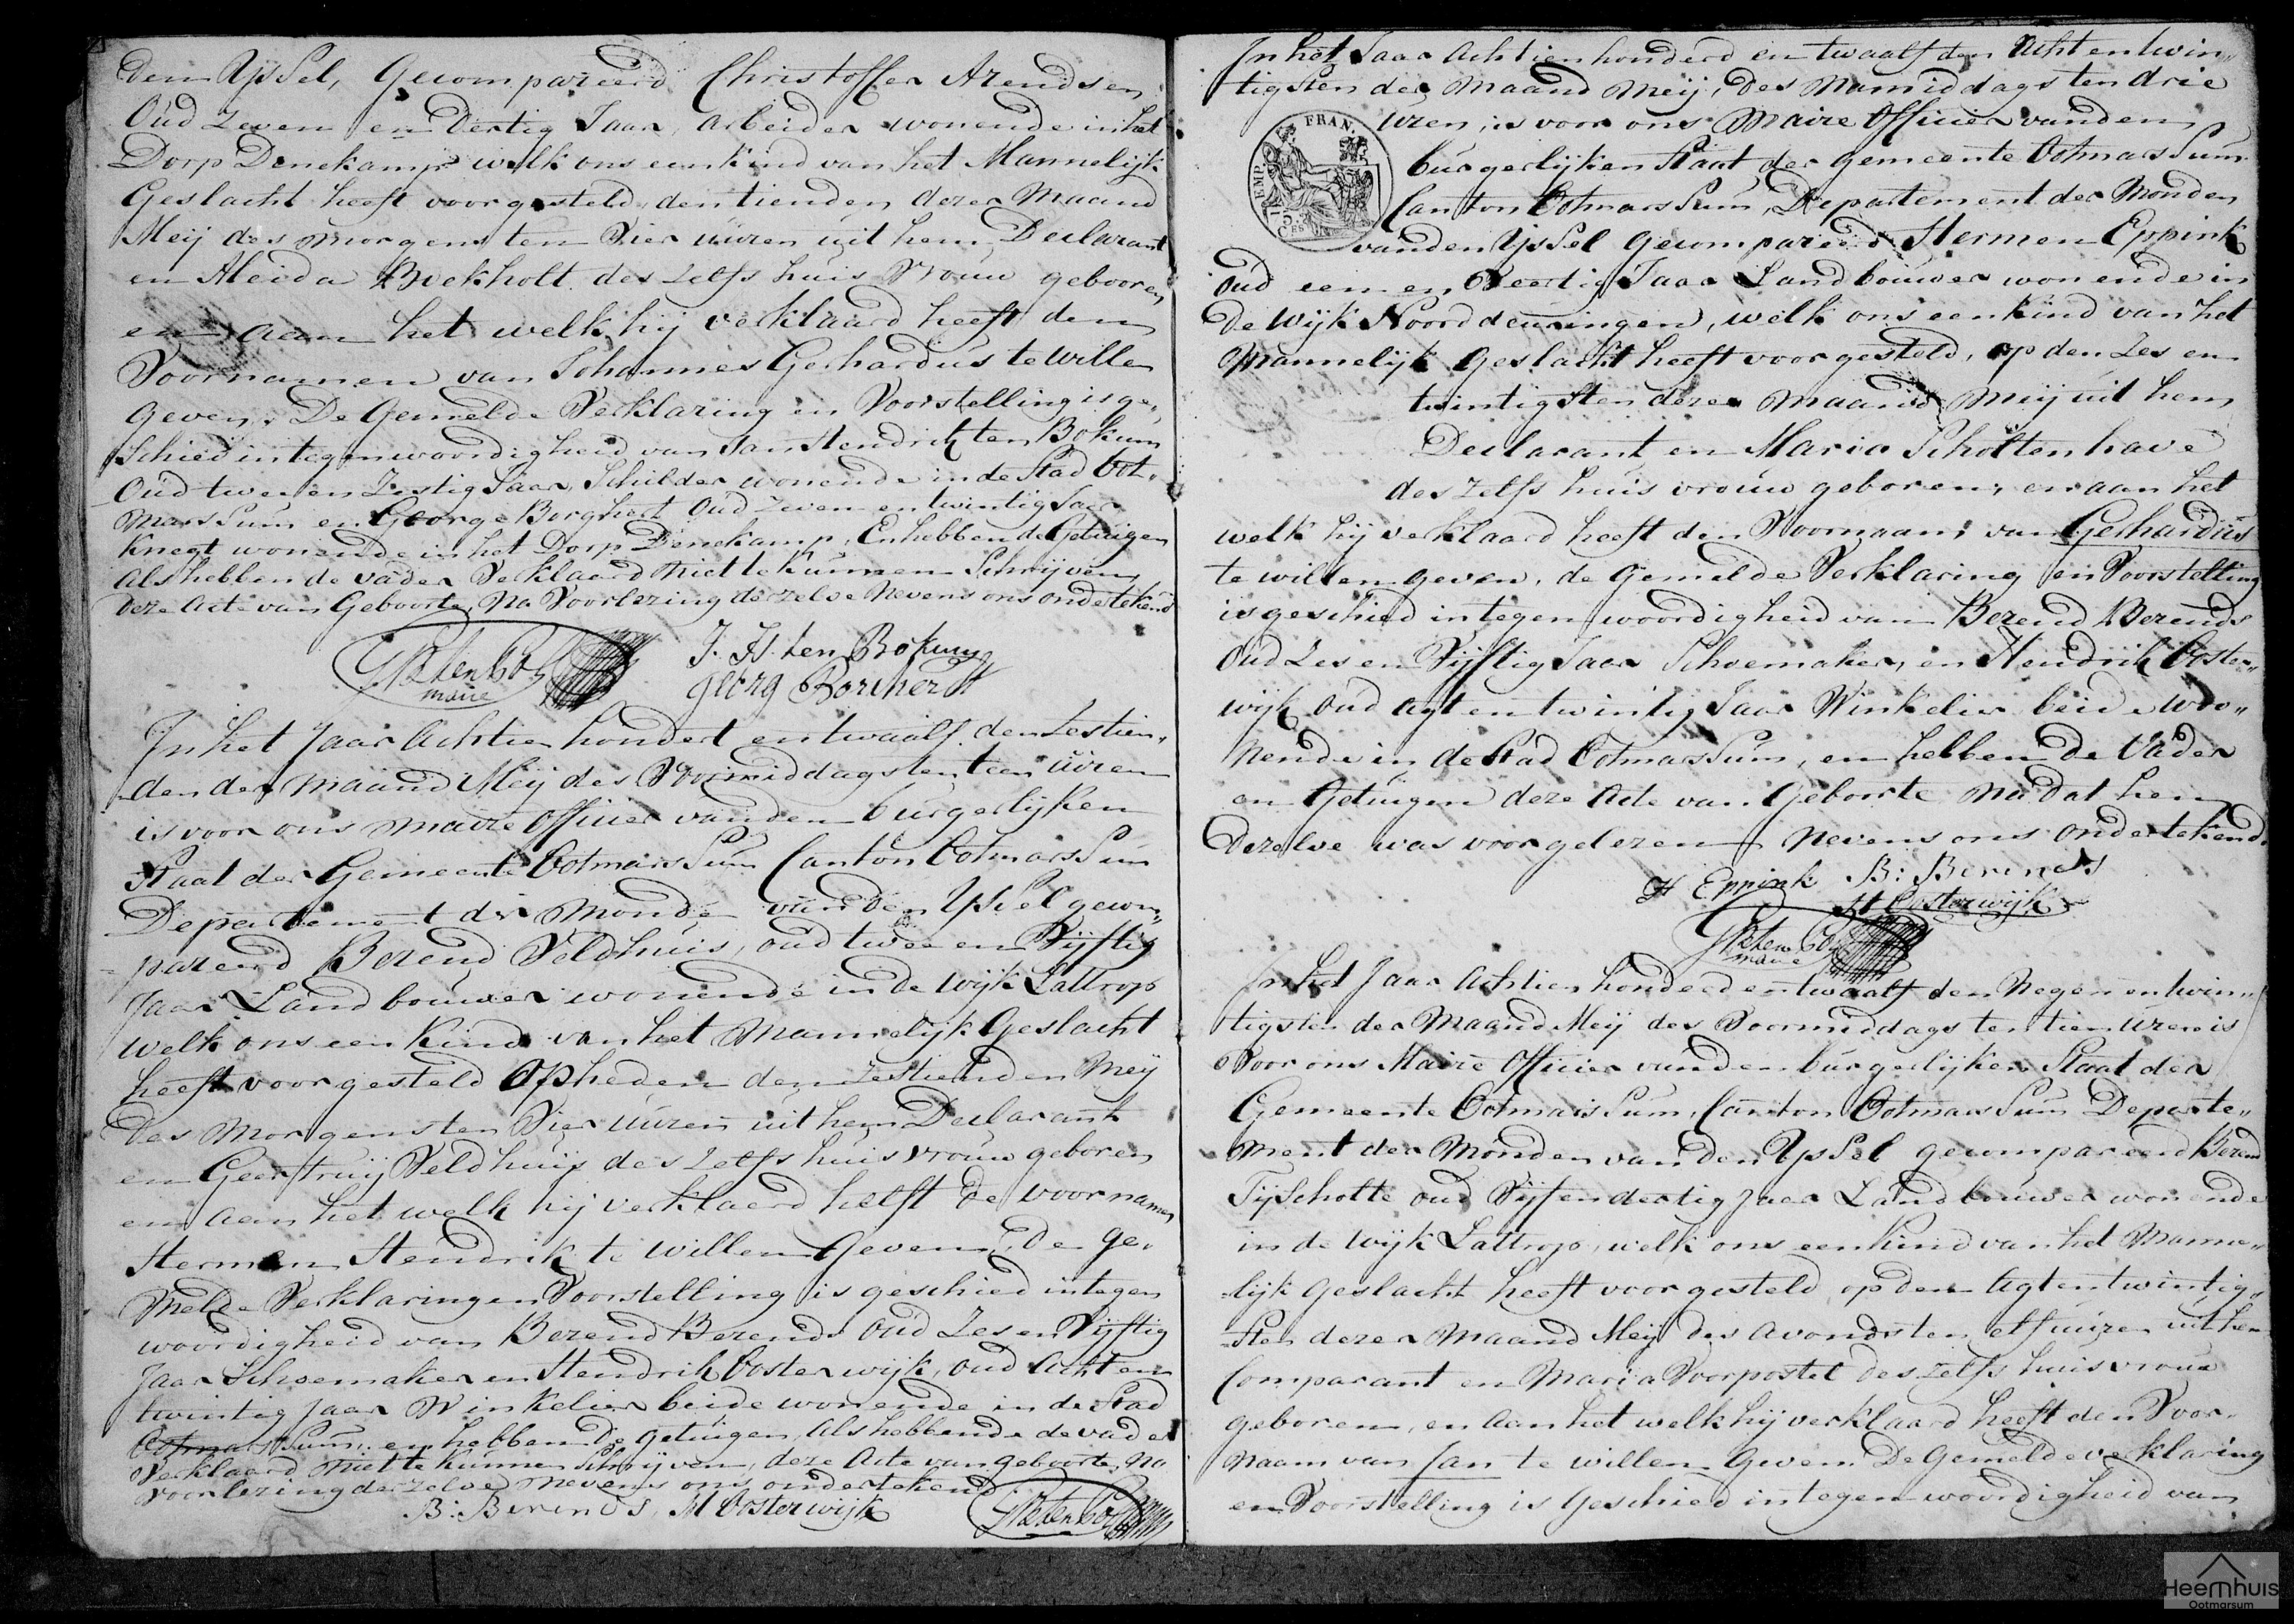 den Yssel, Gecompareerd Christoffer Arendsen
Oud Zeven en Dertig Jaar, arbeider wonende in het
Dorp Denekamp welk ons een kind van het Mannelijk
Geslacht heeft voorgesteld, den tienden dezer Maand
Meij des morgens ten Vier uuren uit hem Declarant
en Aleida Boekholt des zelfs huis Vrouw gebooren
en aan het welk hij verklaard heeft den
Voornamen van Johannes Gerhardus te willen
geven. De Gemelde Verklaring en Voorstelling is ge„
schied in tegenwoordigheid van Jan Hendrik ten Bokum
Oud twee en Zestig Jaar, Schilder wonende in de Stad Oot„
marssum en George Borghert Oud Zeven en twintig Jaar
Knegt wonende in het Dorp Denekamp, En hebben de Getuigen
als hebbende de vader Verklaard Niet te kunnen Schrijven
deze Acte van Geboorte, Na Voorlezing derzelve Nevens ons ondertekend
J. H. ten Bokum
maire
Georg Borchert
In het Jaar Achtien hondert en twaalf den Zestien„
den der maand Meij des Voormiddags ten tien uuren
is voor ons maire Officier van den burgerlijken
Staat der Gemeente Ootmarssum Canton Ootmarssum
Departement der Monden van den Yssel gecom„
pareerd Berend Veldhuis, oud twee en Vijftig
Jaar Landbouwer wonende in de wijk Lattrop
welk ons een Kind van het Mannelijk Geslacht
heeft voorgesteld Op heden den zestienden Meij
des Morgens ten Vier uuren uit hem Declarant
en Geertruij Veldhuijs des zelfs huisvrouw geboren
en aan het welk hij verklaard heeft de voornamen
Hermen Hendrik te willen Geven, De ge„
melde Verklaring en Voorstelling is geschied in tegen
woordigheid van Berend Berends Oud Zes en Vijftig
Jaar Schoemaker en Hendrik Oosterwijk, oud Acht en
twintig Jaar Winkelier beide wonende in de Stad
Ootmarssum, en hebben de getuigen, Als hebbende de vader
Verklaard Niet te kunnen Schrijven, deze Acte van geboorte, Na
voorlezing derzelve Nevens ons ondertekend
B: Berends, H Oosterwijk
In het Jaar Achtien honderd en twaalf den Acht en twin„
tigsten der Maand Meij, des Namiddags ten drie
uren, is voor ons Maire Officier van den
burgerlijken Staat der Gemeente Ootmarssum
Canton Ootmarssum, Departement der Monden
van den Yssel Gecompareerd Hermen Eppink
EMP. FRAN.
Oud een en Veertig Jaar Landbouwer wonende in
De Wijk Noorddeurningen, welk ons een kind van het
Mannelijk Geslacht heeft voorgesteld, op den Zes en
twintigsten dezer Maand Meij uit hem
Declarant en Maria Scholtenhave
des zelfs huis vrouw geboren, en aan het
welk hij verklaard heeft den Voornaam van Gerhardus
te willen geven, de Gemelde Verklaring en Voorstelling
is geschied in tegenwoordigheid van Berend Berends
Oud Zes en Vijftig Jaar Schoemaker, en Hendrik Ooster„
wijk oud agt en twintig Jaar Winkelier beide woo„
nende in de Stad Ootmarssum, en hebben de Vader
en Getuigen deze Acte van Geboorte Na dat hen
Dezelve was voorgelezen nevens ons ondertekend.
H Eppink B: Berends
H Oosterwijk
maire
In het Jaar Achtien honderd en twaalf den Negen en twin„
tigsten der Maand Meij des Voormiddags ten tien uren is
Voor ons Maire Officier van den burgerlijken Staat der
Gemeente Ootmarssum, Canton Ootmarssum Departe„
ment der Monden van den Yssel gecompareerd Berend
Tijscholte oud Vijf en dertig Jaar Landbouwer wonende
in de Wijk Lattrop, welk ons een kind van het Manne„
lijk Geslacht heeft voorgesteld, op den Agt en twintig„
sten dezer Maand Meij des avonds ten elf uuren uit hem
Comparant en Maria Voorpostel des zelfs huisvrouw
geboren, en Aan het welk hij verklaard heeft den Voor„
naam van Jan te willen Geven. De Gemelde verklaring
en Voorstelling is Geschied in tegenwoordigheid van
Heemhuis
Ootmarsum